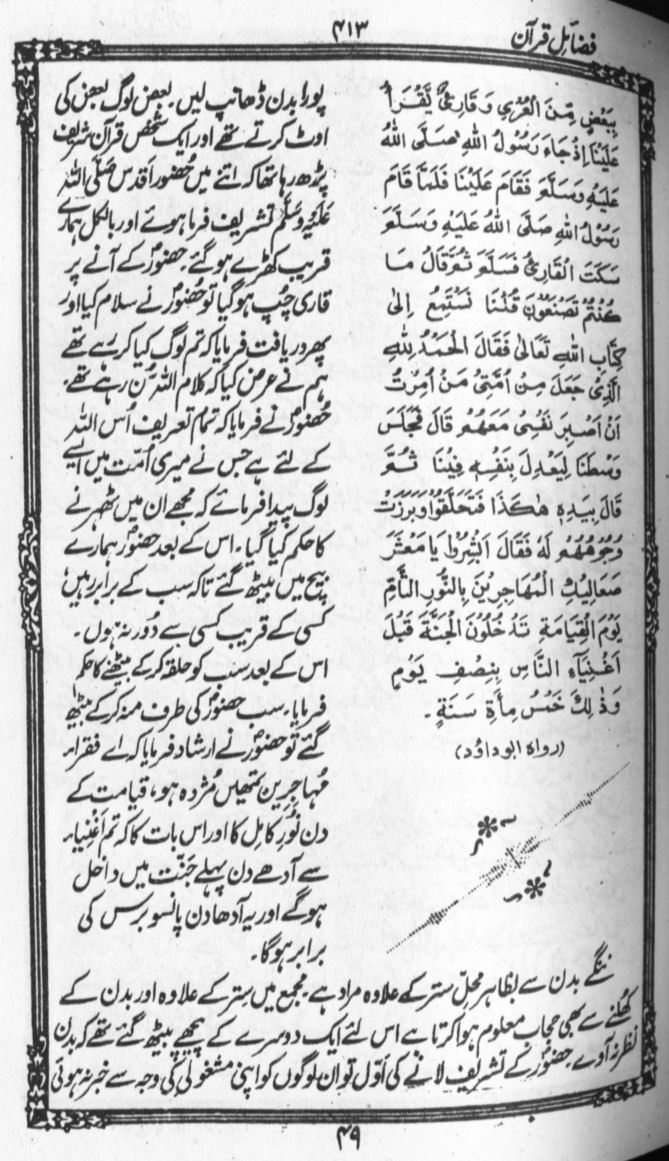 ۴۱۳
فضائل قرآن
بِبَعْضٍ مِّنَ الْعُرْيِ وَقَارِئٌ يَّقْرَأُ
عَلَيْنَا اِذْ جَاءَ رَسُوْلُ اللهِ صَلَّى اللهُ
عَلَيْهِ وَسَلَّمَ فَقَامَ عَلَيْنَا فَلَمَّا قَامَ
رَسُوْلُ اللهِ صَلَّى اللهُ عَلَيْهِ وَسَلَّمَ
سَكَتَ الْقَارِئُ فَسَلَّمَ ثُمَّ قَالَ مَا
كُنْتُمْ تَصْنَعُوْنَ قُلْنَا نَسْتَمِعُ اِلٰى
كِتَابِ اللهِ تَعَالٰى فَقَالَ الْحَمْدُ لِلّٰهِ
الَّذِيْ جَعَلَ مِنْ اُمَّتِيْ مَنْ اُمِرْتُ
اَنْ اَصْبِرَ نَفْسِيْ مَعَهُمْ قَالَ فَجَلَسَ
وَسْطَنَا لِيَعْدِلَ بِنَفْسِهٖ فِيْنَا ثُمَّ
قَالَ بِيَدِهٖ هٰكَذَا فَتَحَلَّقُوْا وَبَرَزَتْ
وُجُوْهُهُمْ لَهٗ فَقَالَ اَبْشِرُوْا يَا مَعْشَرَ
صَعَالِيْكِ الْمُهَاجِرِيْنَ بِالنُّوْرِ التَّامِّ
يَوْمَ الْقِيَامَةِ تَدْخُلُوْنَ الْجَنَّةَ قَبْلَ
اَغْنِيَآءِ النَّاسِ بِنِصْفِ يَوْمٍ
وَذٰلِكَ خَمْسُ مِأَةِ سَنَةٍ۔
(رواه ابوداؤد)
پورا بدن ڈھانپ لیں۔ بعض لوگ بعض کی
اوٹ کرتے تھے اور ایک شخص قرآن شریف
پڑھ رہا تھا کہ اتنے میں حضورِ اَقدس صَلَّی اللہُ
عَلَیْہِ وَسَلَّم تشریف فرما ہوئے اور بالکل ہمارے
قریب کھڑے ہو گئے۔ حضورؐ کے آنے پر
قاری چُپ ہو گیا تو حضورؐ نے سلام کیا اور
پھر دریافت فرمایا کہ تم لوگ کیا کر رہے تھے
ہم نے عرض کیا کہ کلام اللہ سُن رہے تھے۔
حُضورؐ نے فرمایا کہ تمام تعریف اُس اللہ
کے لئے ہے جس نے میری اُمت میں ایسے
لوگ پیدا فرمائے کہ مجھے ان میں ٹھہرنے
کا حکم کیا گیا۔ اس کے بعد حضورؐ ہمارے
بیچ میں بیٹھ گئے تاکہ سب کے برابر رہیں
کسی کے قریب کسی سے دُور نہ ہوں۔
اس کے بعد سب کو حلقہ کرکے بیٹھنے کا حکم
فرمایا۔ سب حضورؐ کی طرف منہ کرکے بیٹھ
گئے تو حضورؐ نے ارشاد فرمایا کہ اے فقراءِ
مُہاجِرین تمہیں مُژدہ ہو، قیامت کے
دن نُورِ کامِل کا اور اس بات کا کہ تم اَغْنِیاء
سے آدھے دن پہلے جنّت میں داخل
ہوگے اور یہ آدھا دن پانسو برس کی
برابر ہوگا۔
ننگے بدن سے بظاہر محلِّ ستر کے علاوہ مراد ہے۔ مجمع میں ستر کے علاوہ اور بدن کے
کُھلنے سے بھی حجاب معلوم ہوا کرتا ہے اس لئے ایک دوسرے کے پیچھے بیٹھ گئے تھے کہ بدن
نظر نہ آوے۔ حضورؐ کے تشریف لانے کی اوّل تو ان لوگوں کو اپنی مشغولی کی وجہ سے خبر نہ ہوئی
۴۹